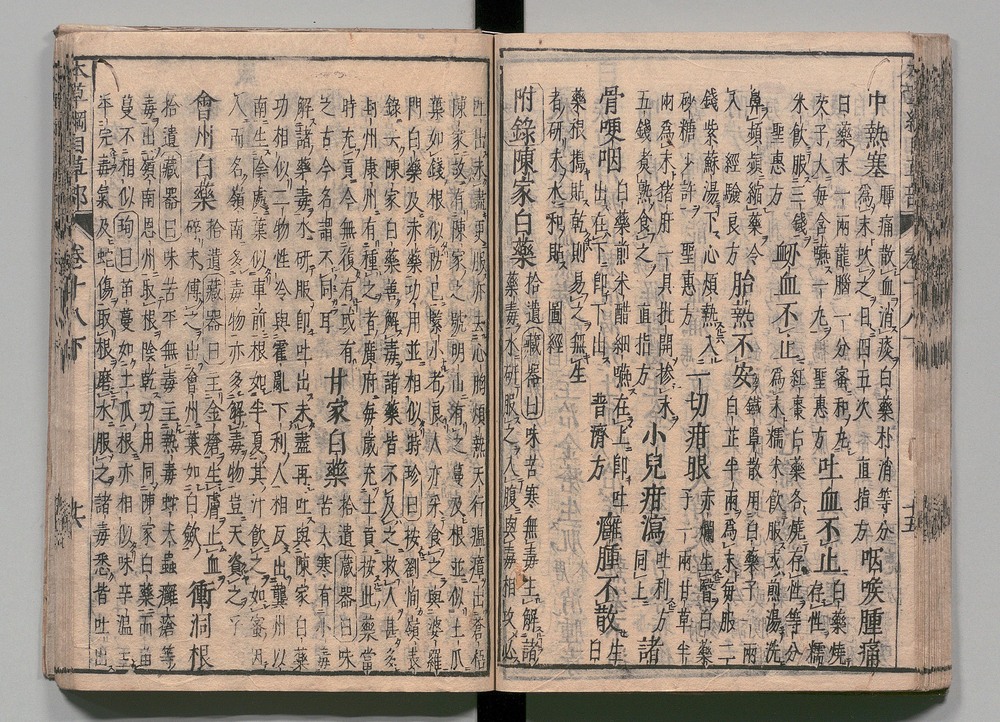 中熱塞 腫痛散血消痰白藥朴消等分
爲末吹之日四五次 直指方 咽喉腫痛
白藥末一兩龍腦一分蜜和丸
芡子大每含嚥一丸 聖惠方 吐血不止 白藥燒
存性糯
米飲服三錢
聖惠方 衂血不止 紅棗白藥各燒存性等分
爲末糯米飲服或煎湯洗
鼻頻頻縮藥令
入 經驗良方 胎熱不安 鐵罩散用白藥子一兩
白芷半兩爲末每服二
錢紫蘇湯下心煩熱入
砂糖少許 聖惠方 一切疳眼 赤爛生瞖白藥
子一兩甘草半
兩爲末猪肝一具批開摻末
五錢煮熟食之 直指方 小兒疳瀉 吐利方
同上 諸
骨哽咽 白藥前米醋細嚥在上即吐
出在下即下出 普濟方 癰腫不散 生白
藥根搗貼乾則易之無生
者研末水和貼 圖經
附錄陳家白藥 拾遺藏器曰味苦寒無毒主解諸
藥毒水研服之入腹與毒相攻必
吐出未盡更服亦去心胸煩熱天行瘟瘴出蒼梧
陳家故有陳家之號明山有之蔓及根並似土瓜
葉如錢根似防已緊小者良人亦采食之與婆羅
門白藥及赤藥功用並相似時珍曰按劉恂嶺表
錄云陳家白藥善解諸藥皆不及之救人甚多
封州康州有種之者廣府每歲充土貢按此藥當
時充貢今無復有或有
之古今名謂不同耳 甘家白藥 拾遺藏器曰味
苦大寒有小毒
解諸藥毒水研服即吐出未盡再吐與陳家白藥
功相似二物性冷與霍亂下利人相反出龔州以
南生陰處葉似車前根如半夏其汁飲之如蜜因
人而名嶺南多毒物亦多解毒物豈天資之乎
會州白藥 拾遺藏器曰主金瘡生膚止血
碎末傅之出會州葉如白歛 衝洞根
拾遺藏器曰味苦平無毒主熱毒蛇犬蟲癰瘡等
毒出嶺南恩州取根陰乾功用同陳家白藥而苗
蔓不相似珣曰苗蔓如土瓜根亦相似味辛溫主
一年完毒氣及蛇傷取根磨水服之諸毒悉皆吐出
卷十八下